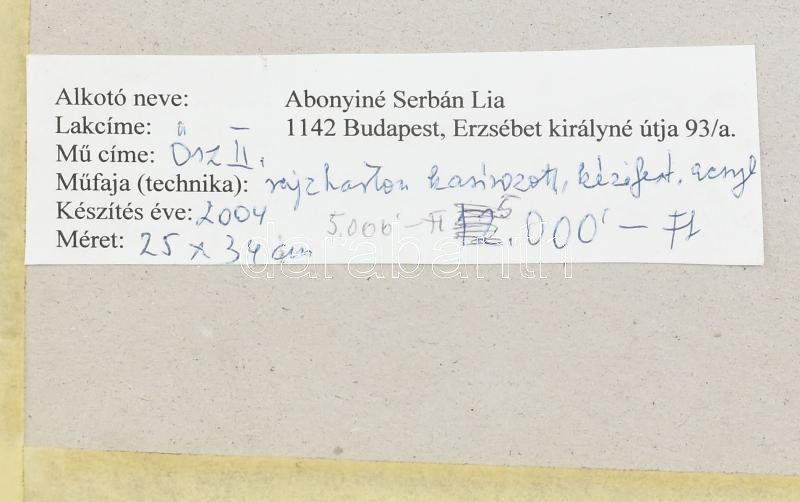 Alkotó neve: Abonyiné Serbán Lia
Lakcíme: 1142 Budapest, Erzsébet királyné útja 93/a.
Mű címe: Ősz II.
Műfaja (technika): rajzkarton kasírozott, kézifest. acryl
Készítés éve: 2004 5.000'- Ft 5.000'- Ft
Méret: 25 x 34 cm
darabanth